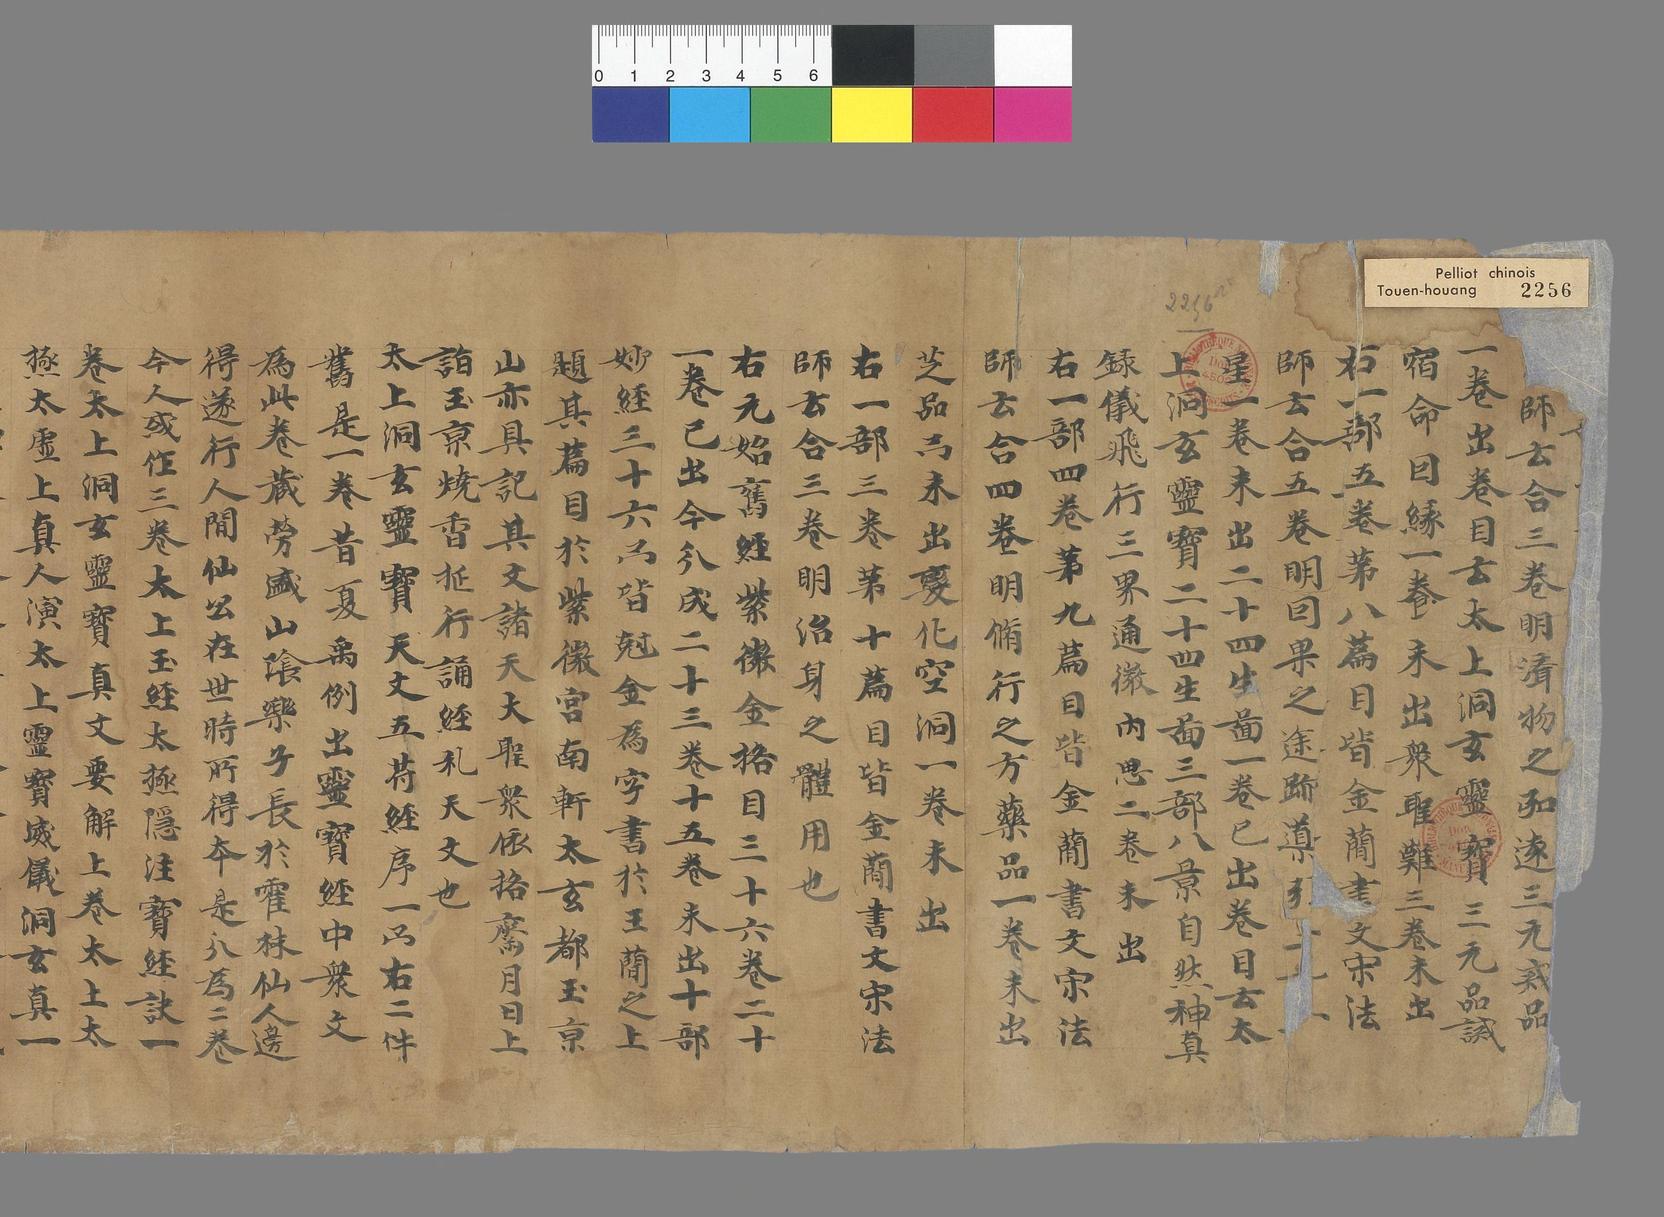 0 1 2 3 4 5 6
Pelliot chinois
Touen-houang 2256
2256
師云合三卷明濟物之弘遠三元戒品
一卷出卷目云太上洞玄靈寶三元品誡
宿命因緣一卷未出衆聖難三卷未出
右一部五卷第八篇目皆金蕳書文宋法
師云合五卷明因果之途跡導
星一卷未出二十四生啚一卷已出卷目云太
上洞玄靈寶二十四生啚三部八景自然神真
錄儀飛行三界通徵內思二卷未出
右一部四卷第九篇目皆金蕳書文宋法
師云合四卷明脩行之方藥品一卷未出
芝品亦未出變化空洞一卷未出
右一部三卷第十篇目皆金蕳書文宋法
師云合三卷明治身之體用也
右元始舊經紫微金挌目三十六卷二十
一卷已出今分成二十三卷十五卷未出十部
妙經三十六亦皆尅金為字書於玉蕳之上
題其篇目於紫微宮南軒太玄都玉京
山亦具記其文諸天大聖衆依挌齋月日上
詣玉京燒香㧌行誦經礼天文也
太上洞玄靈寶天文五苻經序一亦右二件
舊是一卷昔夏禹例出靈寶經中衆文
為此卷藏勞盛山隂樂子長於霍林仙人邊
得遂行人間仙公在世時所得夲是分為二卷
今人或作三卷太上玉經太極隱注寶經訣一
卷太上洞玄靈寶真文要解上卷太上太
極太虛上真人演太上靈寶威儀洞玄真一